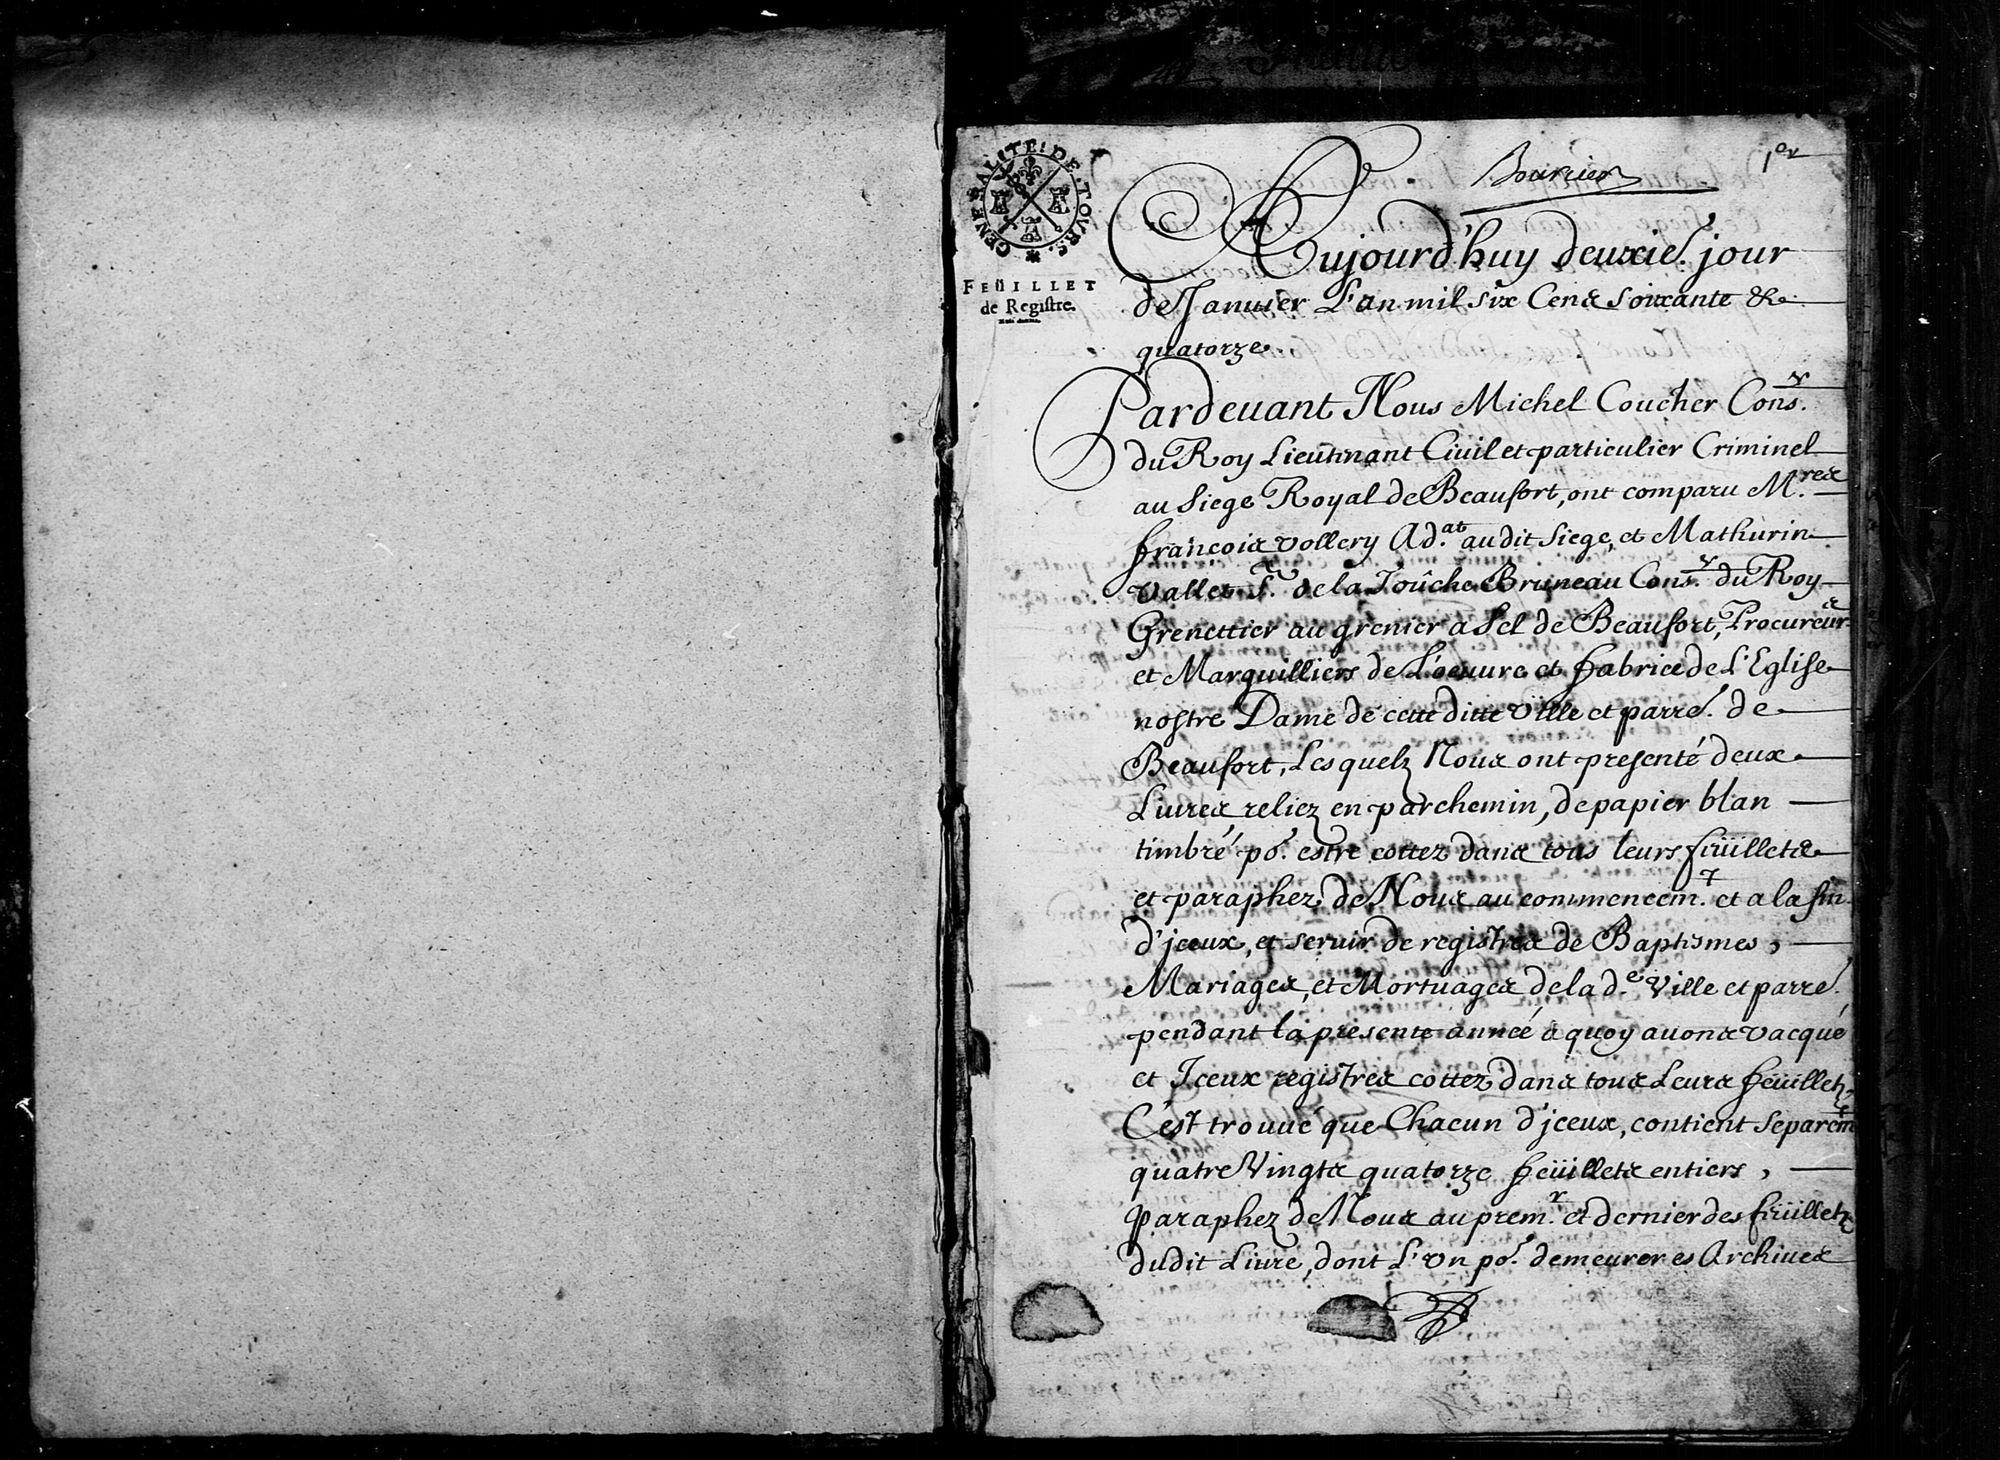 GENERALITE DE TOVRS
FEÜILLET
de Registre.
1er
Aujourd'huy deuxie. jour
de Januier L'an mil six Cens soixante &
quatorze.
Pardeuant Nous Michel Coucher Consr.
du Roy Lieutenant Ciuil et particulier Criminel
au Siege Royal de Beaufort, ont comparu M.res
françois vollery Ad.at audit Siege, et Mathurin
vallet Sr. de la Toûche Bruneau Consr. du Roy
Grenettier au grenier a Sel de Beaufort, Procureurs
et Marguilliers de L'oeuure et fabrice de L'Eglise
nostre Dame de cette ditte ville et parre. de
Beaufort, Lesquelz Nous ont presenté deux
Liures reliez en parchemin, de papier blan
timbré po. estre cottez dans tous leurs feüillets
et paraphez de Nous au commencemt. et a la fin
d'jceux, et seruir de registres de Baptismes,
Mariages, et Mortuages de la d.e ville et parre.
pendant la presente année a quoy auons vacqué
et Jceux registres cottez dans tous Leurs feüilletz
C'est trouué que Chacun d'jceux, contient separemt
quatre Vingts quatorze feüillets entiers,
paraphez de Nous au premr. et dernier des feüilletz
dudit Liure, dont L'vn po. demeurer es Archiues